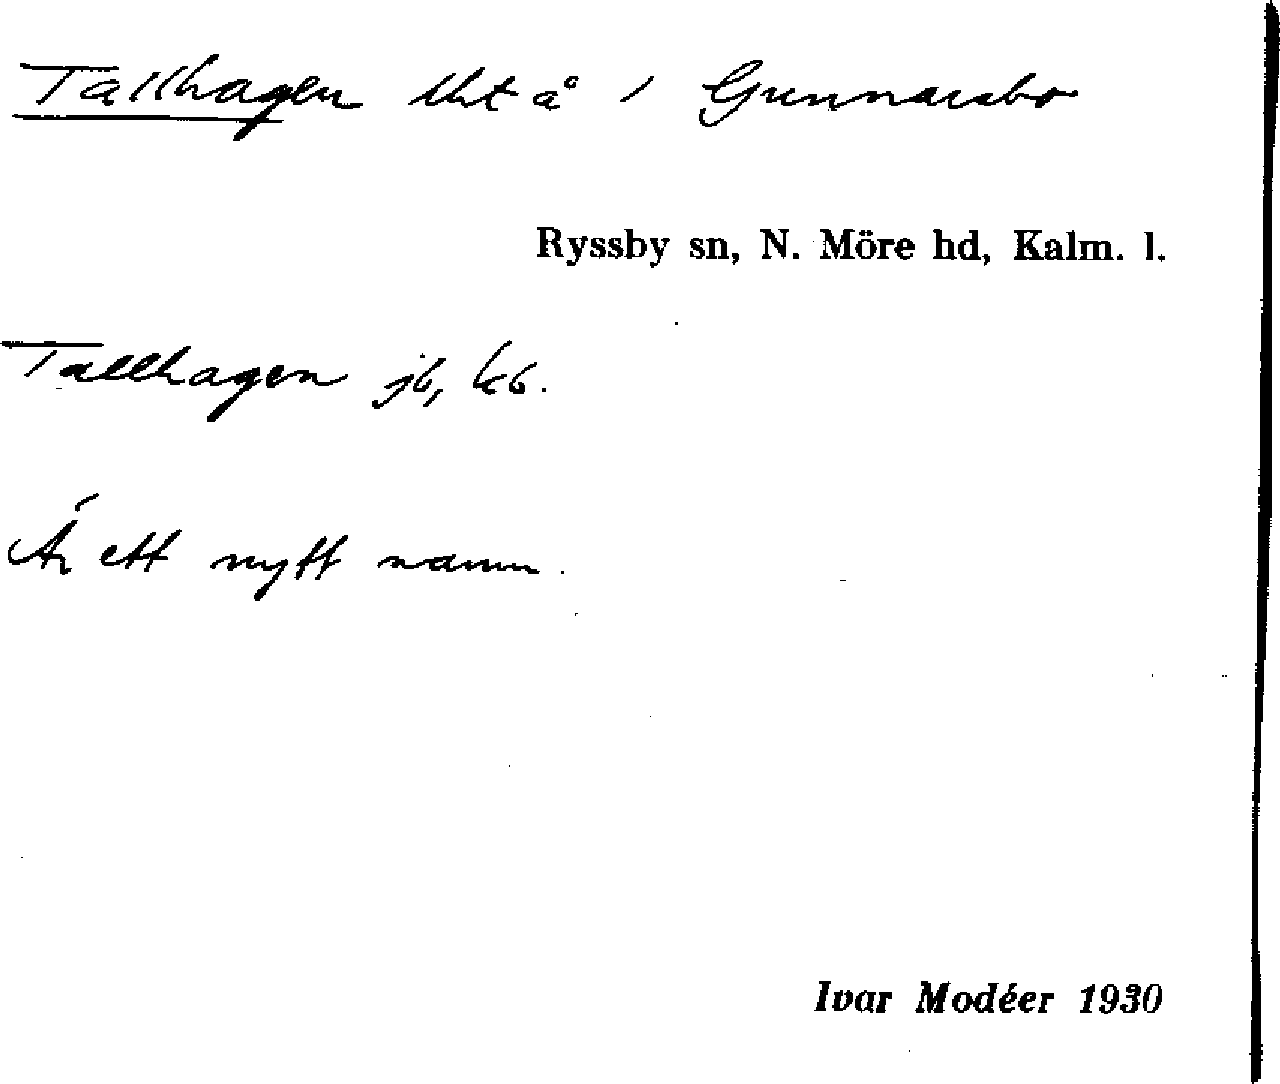 Tallhagen lht å 1 Gunnarsbo
Ryssby sn, N. Möre hd, Kalm. l.
Tallhagen jb, kb.
Är ett nytt namn.
Ivar Modéer 1930